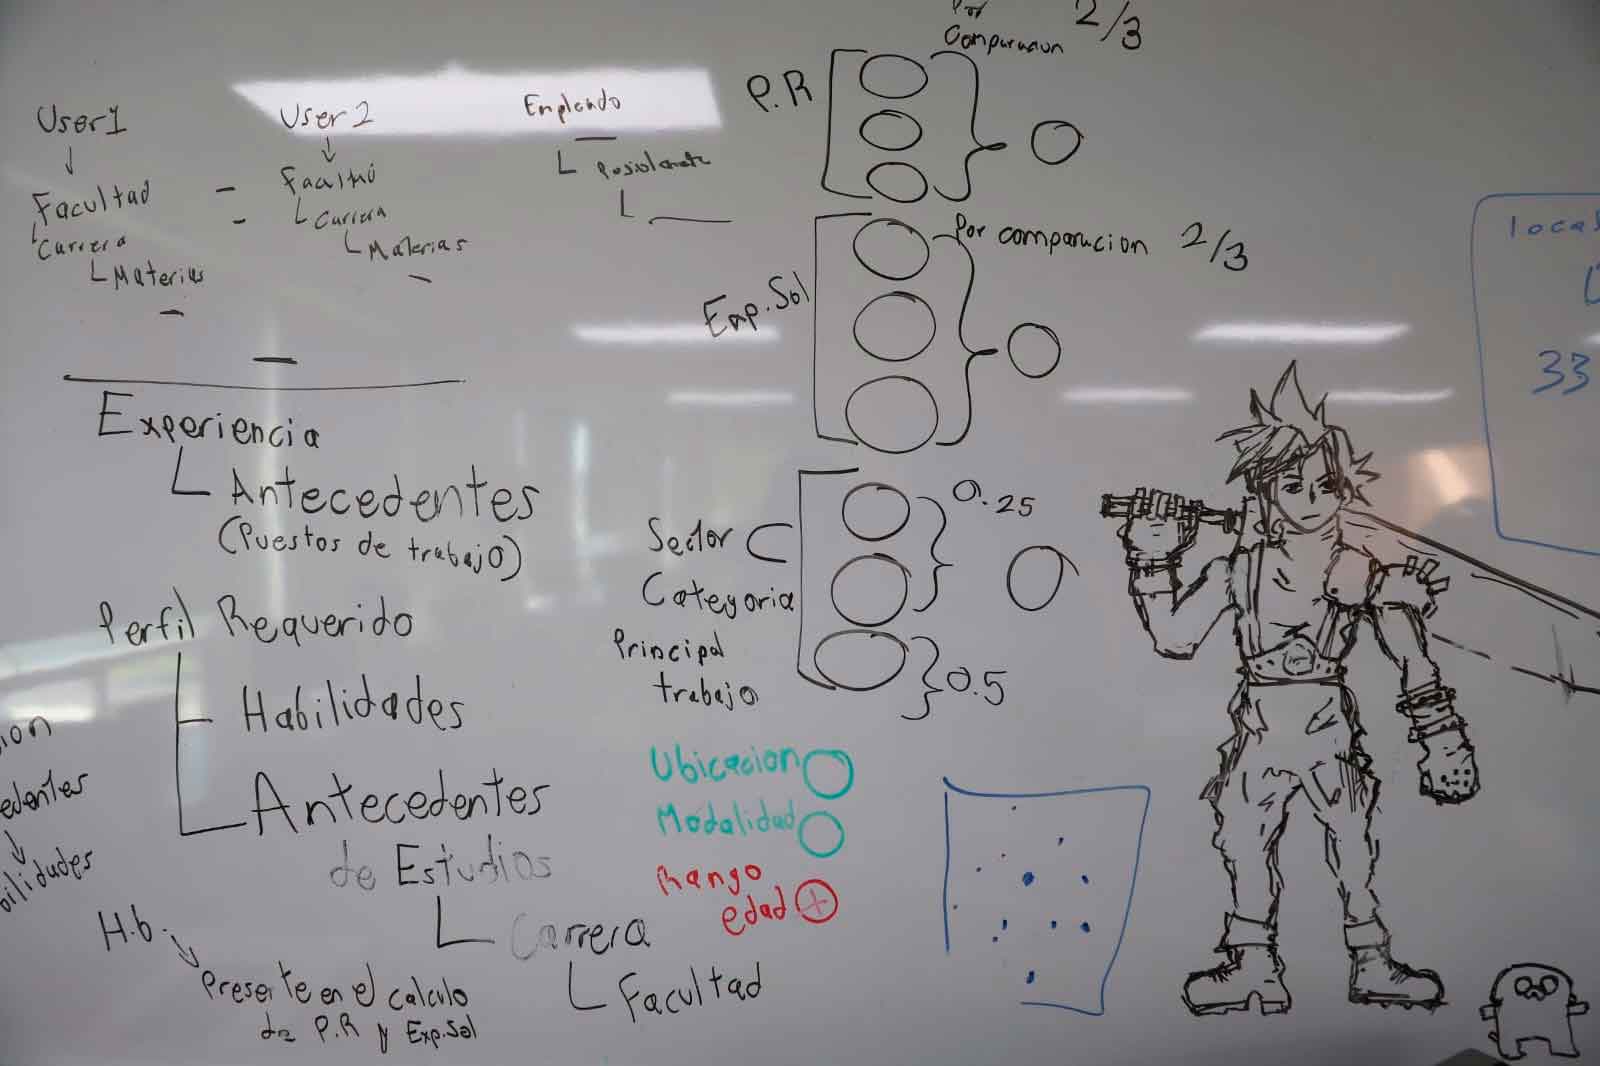 User1
Facultad
Carrera
Materias
User2
Carrera
Materias
Empleado
P.R
Por
Comparacion 2/3
Exp.Sol
Por comparacion 2/3
Sector
Categoria
Principal
trabajo
0.25
0.5
Experiencia
Antecedentes
(Puestos de trabajo)
Perfil Requerido
Habilidades
Antecedentes
de Estudios
Carrera
Facultad
H.b
Presente en el calculo
de P.R y Exp.Sol
Ubicacion
Modalidad
Rango
edad
33